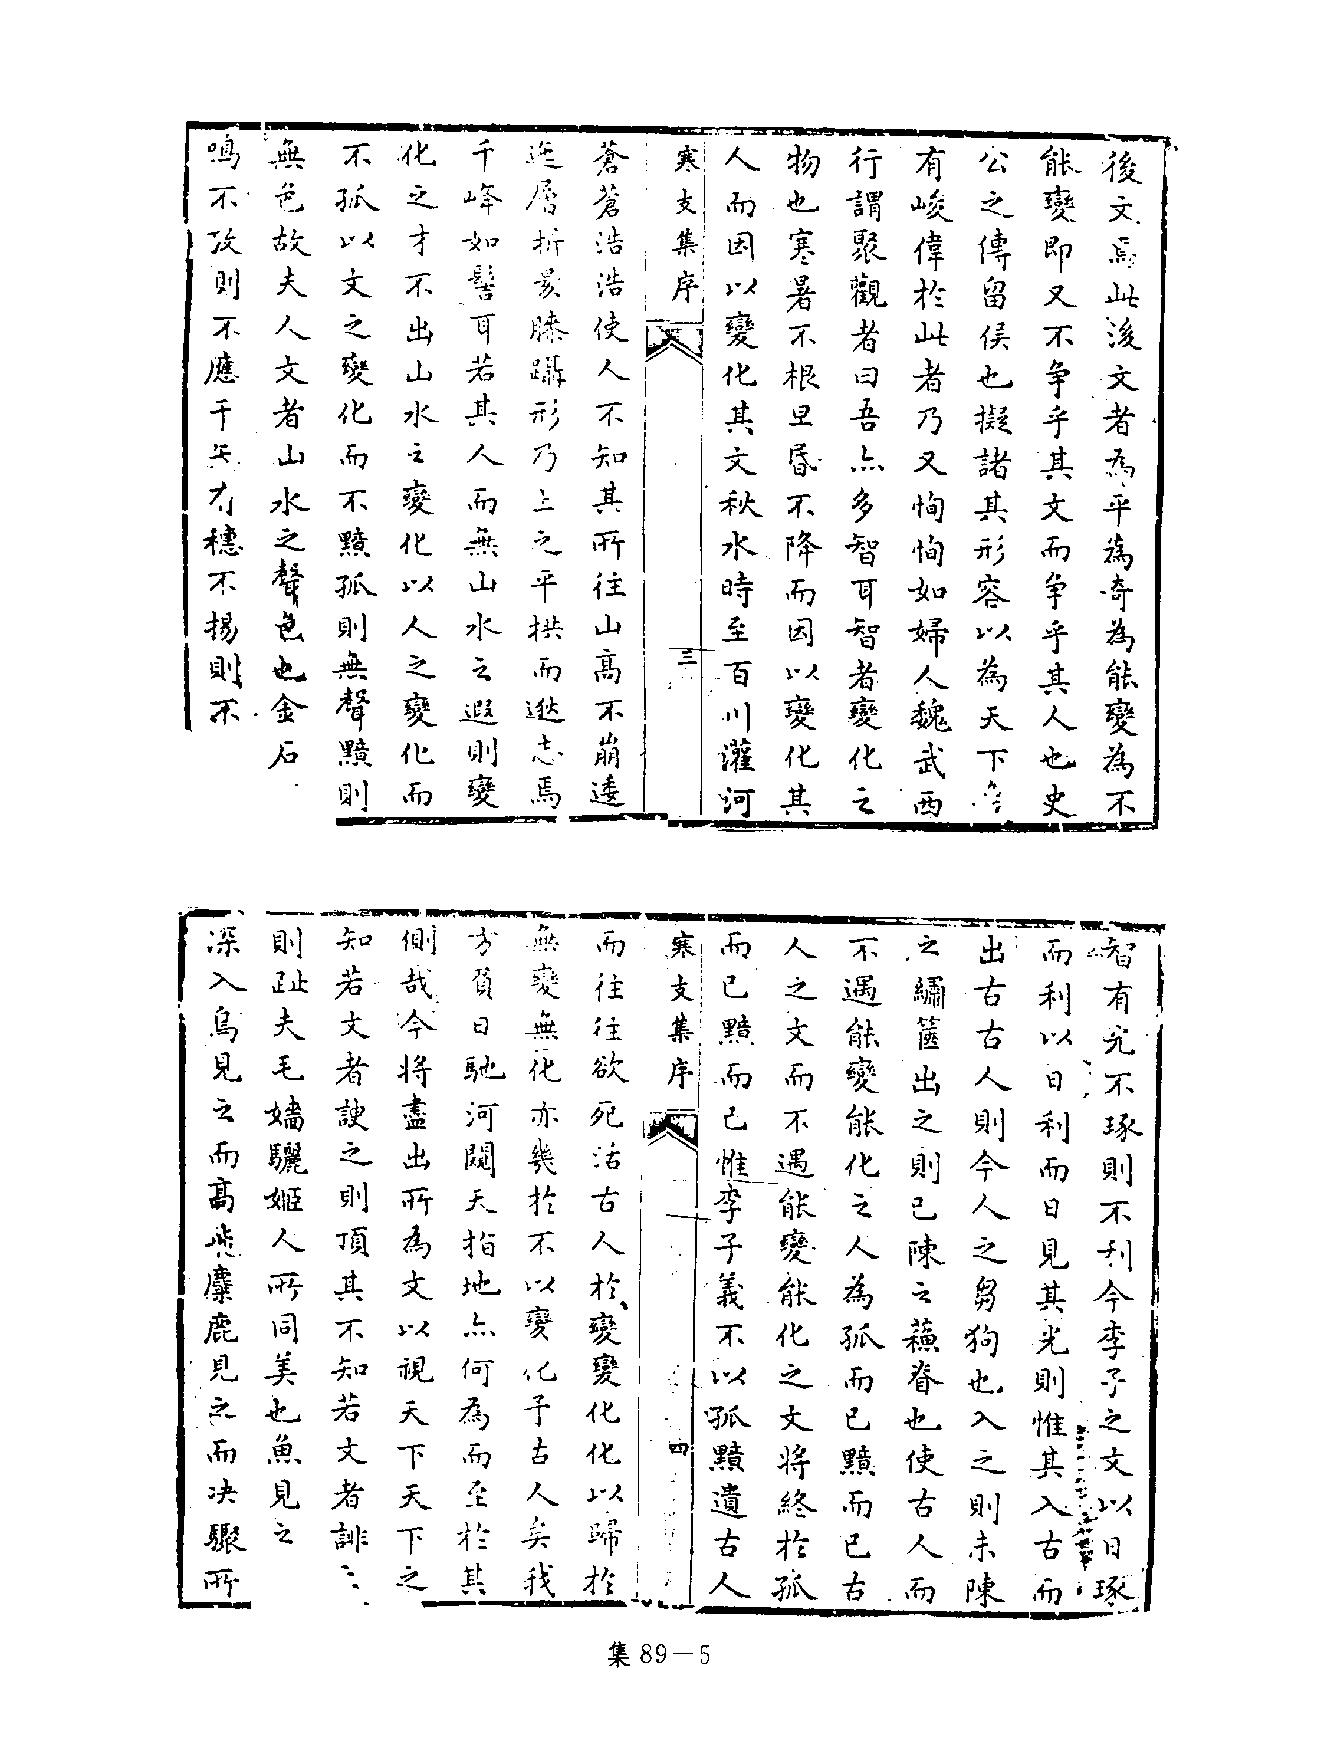 後文焉此後文者為平為奇為能變為不
能變即又不爭乎其文而爭乎其人也史
公之傳留侯也擬諸其形容以為天下
有峻偉於此者乃又恂恂如婦人魏武西
行謂聚觀者曰吾亦多智耳智者變化之
物也寒暑不根旦昏不降而因以變化其
人而因以變化其文秋水時至百川灌河
寒支集序
三
蒼蒼浩浩使人不知其所往山高不崩逶
迤層折亥膝躡形乃上之平拱而遯志焉
千峰如髻耳若其人而無山水之遐則變
化之才不出山水之變化以人之變化而
不孤以文之變化而不黯孤則無聲黯則
無色故夫人文者山水之聲色也金石
鳴不攷則不應干矢有穗不揚則不
智有光不琢則不利今李子之文以日琢
而利以日利而日見其光則惟其入古而
出古古人則今人之芻狗也入之則未陳
之繡篋出之則已陳之蘇脊也使古人而
不遇能變能化之人為孤而已黯而已古
人之文而不遇能變能化之文將終於孤
而已黯而已惟李子義不以孤黯遺古人
寒支集序
四
而往往欲死活古人於變變化化以歸於
無變無化亦幾於不以變化予古人矣我
方負日馳河闕天指地亦何為而至於其
側哉今將盡出所為文以視天下天下之
知若文者諛之則頂其不知若文者誹
則趾夫毛嬙驪姬人所同美也魚見之
深入鳥見之而高飛麋鹿見之而決驟所
集 89－5